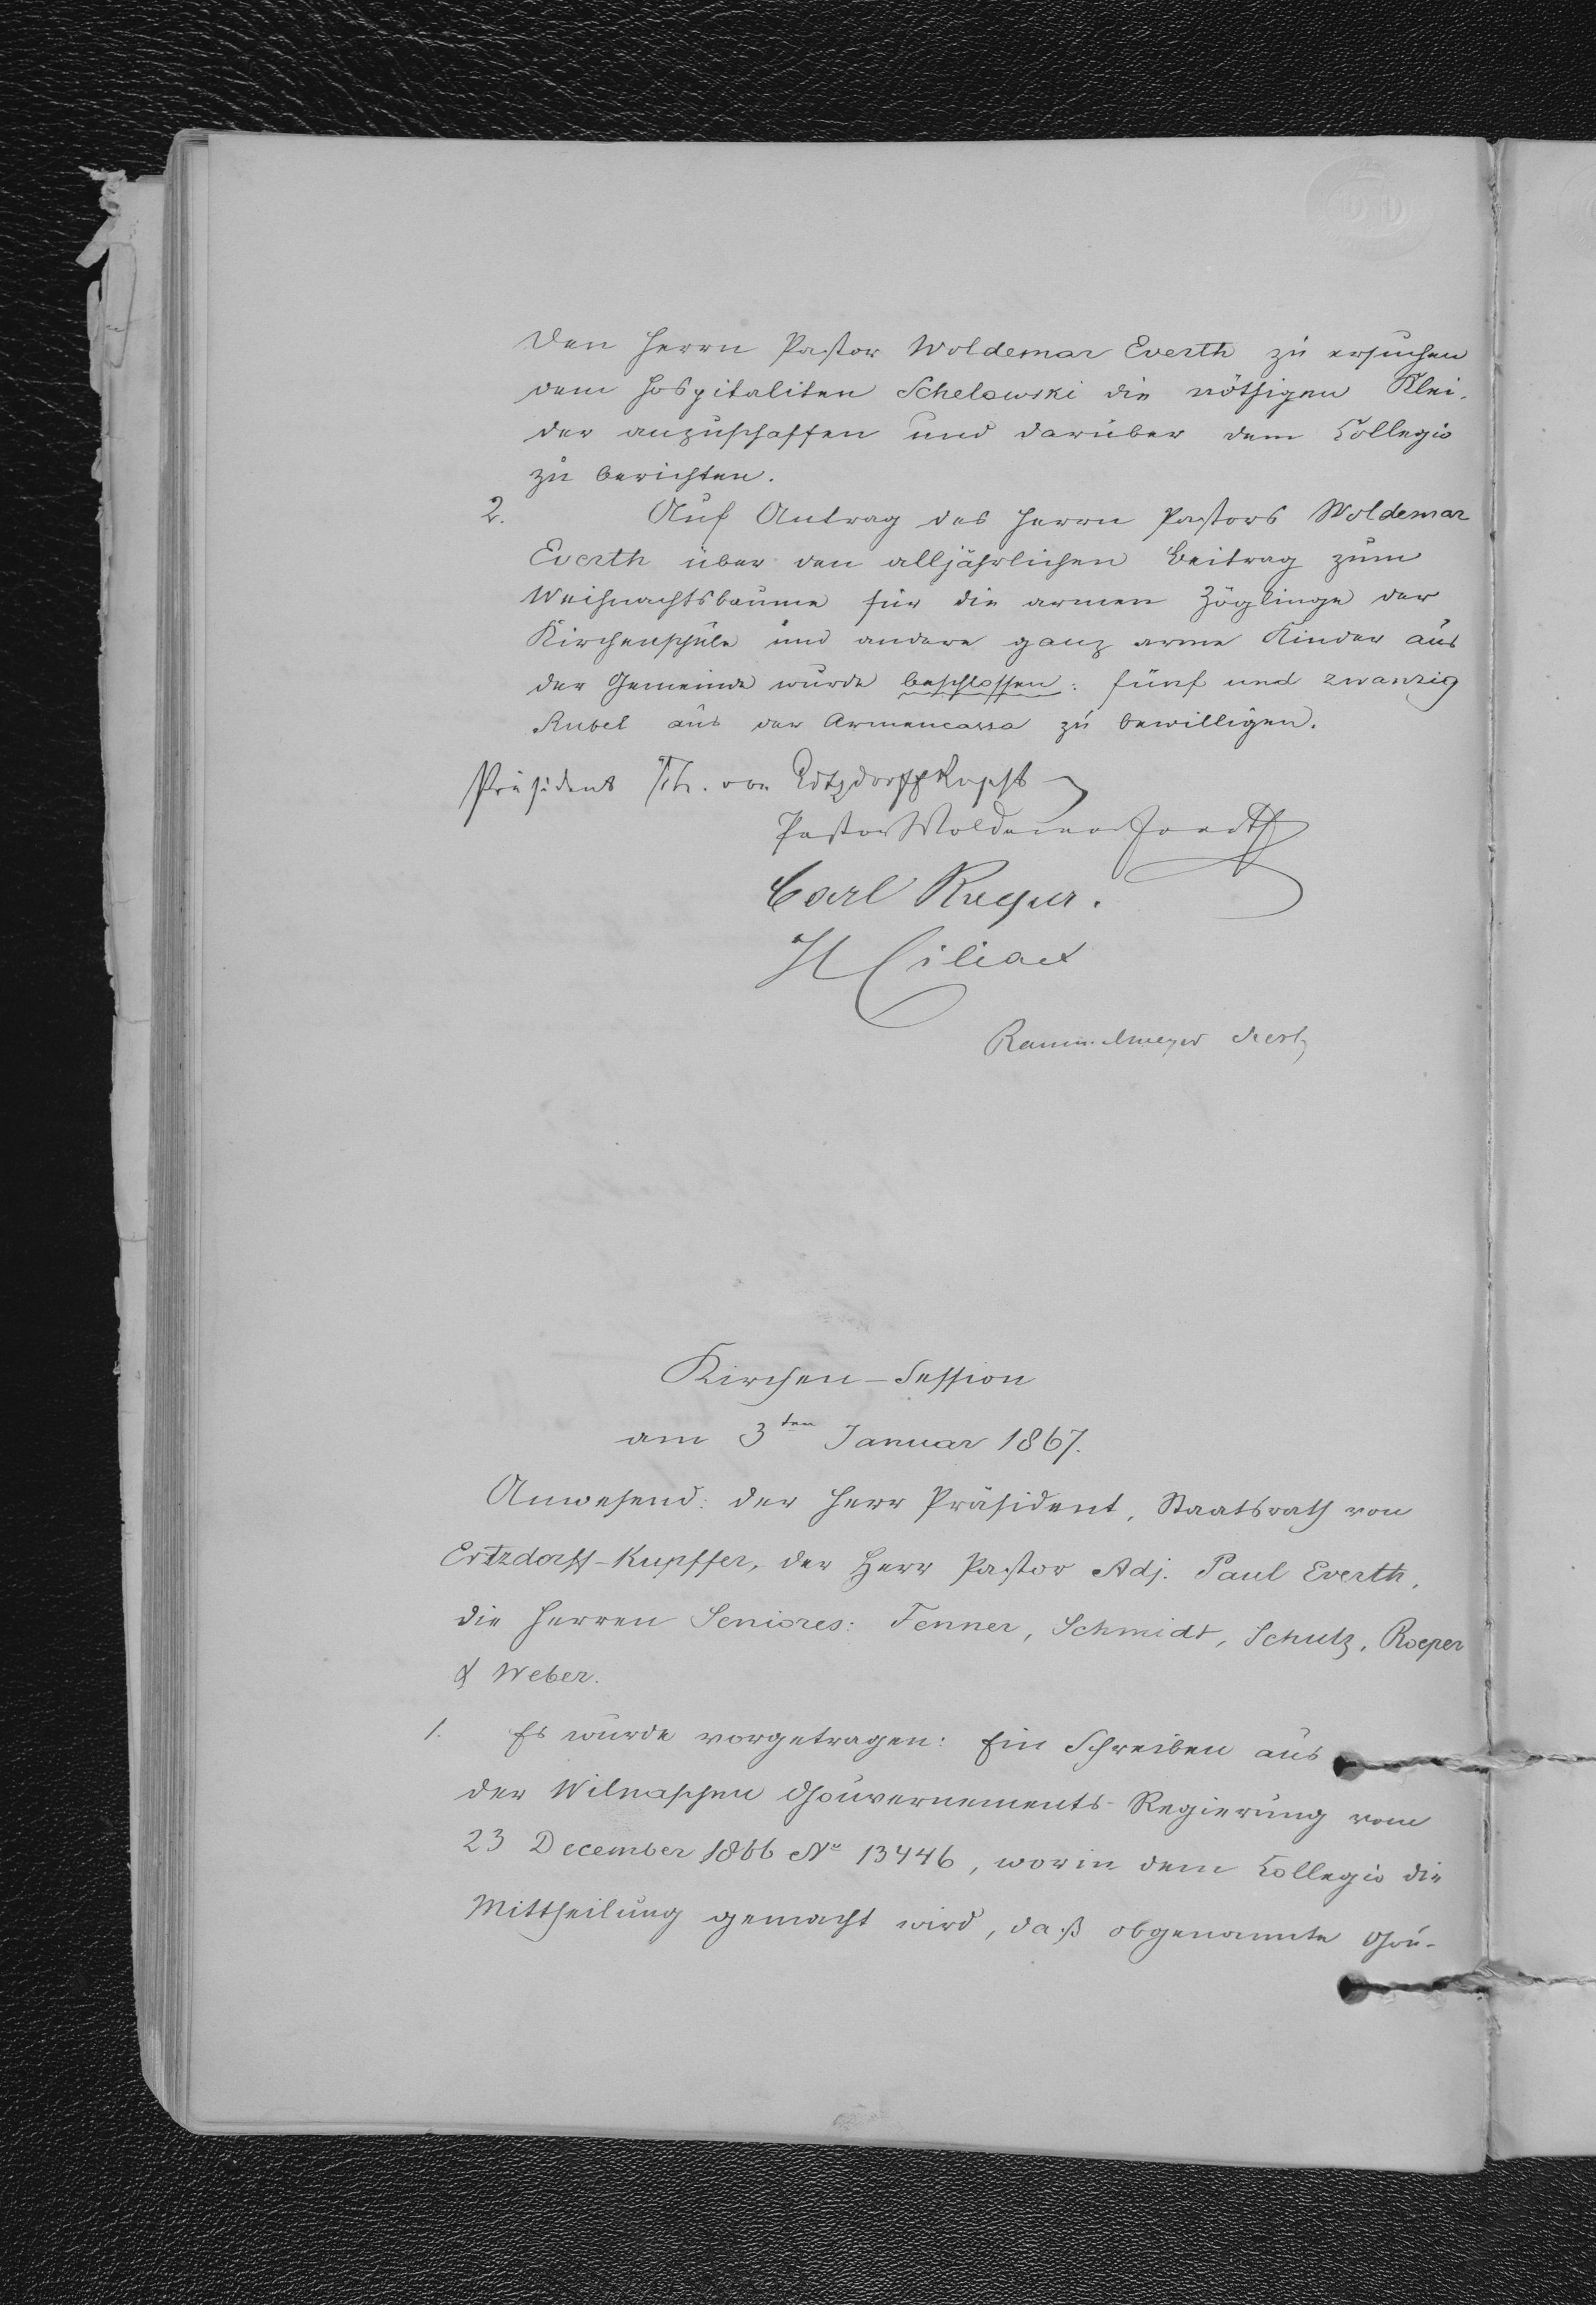 den Herrn Pastor Woldemar Everth zu ersuchen
dem Hospitaliten Schelowski die nöthigen Klei-
der anzuschaffen und darüber dem Collegio
zu berichten.
2. Auf Antrag des Herrn Pastors Woldemar
Everth über den alljährlichen Beitrag zum
Weihnachtsbaume für die armen Zöglinge der
Kirchenschule und andere ganz arme Kinder aus
der Gemeinde wurde beschlossen: fünf und zwanzig
Rubel aus der Armencassa zu bewilligen.
Präsident Th. von Ertzdorff Kupffer
Pastor Woldemar Everth
Carl Roeper.
H Ciliax
Rammelmeyer
Kirchen-Session
am 3ten Januar 1867.
Anwesend: der Herr Präsident, Staatsrath von
Ertzdorff-Kupffer, der Herr Pastor Adj. Paul Everth,
die Herren Seniores: Fenner, Schmidt, Schulz, Roeper
& Weber.
1. Es wurde vorgetragen: Ein Schreiben aus
der Wilnaschen Gouvernements-Regierung vom
23 December 1866 No 13446, worin dem Collegio die
Mittheilung gemacht wird, daß obgenannte Gou-